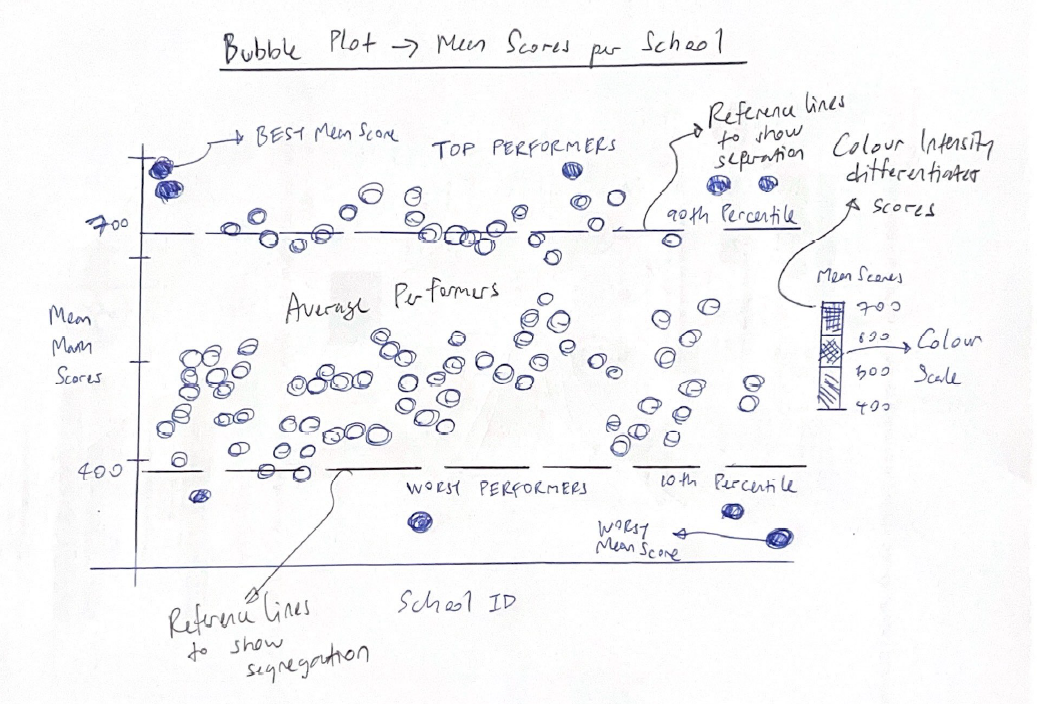 Bubble Plot → Mean Scores per School
Reference lines
to show
seperation
Colour Intensity
differentiates
scores
BEST Mean Score
TOP PERFORMERS
700
90th Percentile
Average Performers
Mean
Math
Scores
Mean Scores
700
600
500
400
Colour
Scale
400
WORST PERFORMERS
10th Percentile
WORST
Mean Score
School ID
Reference lines
to show
segregation